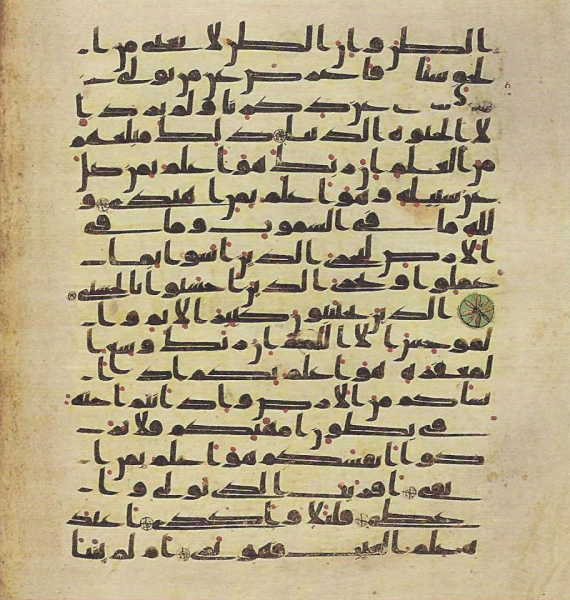 الظن وان الظن لا يغني من ا
لحق شيا فاعرض عن من تولى
عن ذكرنا ولم يرد ا
لا الحيوة الدنيا ذلك مبلغهم
من العلم ان ربك هو اعلم بمن ضل
عن سبيله وهو اعلم بمن اهتدى و
لله ما في السموت وما في
الارض ليجزي الذين اسوا بما
عملوا ويجزي الذين احسنوا بالحسنى
الذين يجتنبون كبير الاثم وا
لفوحش الا اللمم ان ربك وسع ا
لمغفرة هو اعلم بكم اذ ا
نشاكم من الارض واذ انتم اجنة
في بطون امهتكم فلا تز
كوا انفسكم هو اعلم بمن ا
تقى افريت الذي تولى وا
عطى قليلا واكدى اعند
ه علم الغيب فهو يرى ام لم ينبا